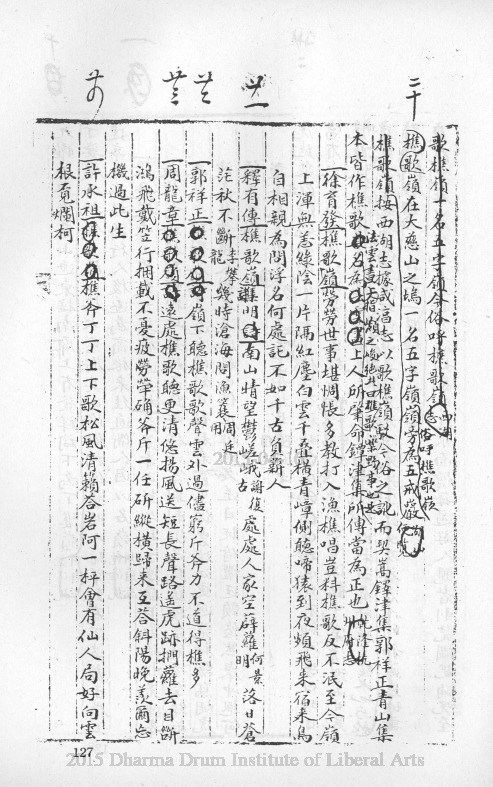 二十
廿一
廿二
廿三
廿四
歌樵嶺一名五字嶺今俗呼樵歌嶺
樵歌嶺在大慈山之塢一名五字嶺嶺旁為五戒巖
樵歌嶺按西湖志據武林舊志以歌樵嶺駁今俗之訛而契嵩鐔津集郭祥正青山集
本皆作樵歌 上人所肇命鐔津集所傳當為正也
徐育發樵歌嶺勞勞世事堪惆悵多教打入漁樵唱豈料樵歌反不泯至今嶺
上渾無恙綠陰一片隔紅塵白雲千疊橫青嶂側聽啼猿到夜頻飛來宿來鳥
自相親為問浮名何處託不如千古負薪人
釋有傳樵歌嶺 南山情望鬱嵯峨謝復古處處人家空薜蘿何景明落日蒼
茫秋不斷李攀龍幾時滄海問漁蓑周廷用
郭祥正 嶺下聽樵歌歌聲雲外過儘窮斤斧力不道得樵多
周龍章 遠處樵歌聽更清悠揚風送短長聲路遙虎跡捫蘿去目斷
鴻飛戴笠行拥載不憂疲勞犖确斧斤一任斫縱橫歸來互答斜陽晚羨爾忘
機過此生
許承祖 樵斧丁丁上下歌松風清籟答岩阿一枰會有仙人局好向雲
根覓爛柯
127
2015 Dharma Drum Institute of Liberal Arts